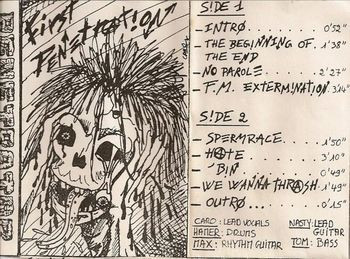 First
Penetration
S!DE 1
- INTRØ ........ 0'52"
- THE BEGINNING OF . 1'38"
THE END
- NO PAROLE .... 2'27"
- F.M. EXTERM!NATION. 3'14"
S!DE 2
- SPERMRACE ..... 1'50"
- HATE ....... 3'10"
- 'BIN ....... 0'49"
- WE WANNA THRASH . 1'49"
- OUTRØ ....... 0'15"
CARO: LEAD VOCALS
HAMER: DRUMS
MAX: RHYTHM GUITAR
NASTY: LEAD
GUITAR
TOM: BASS